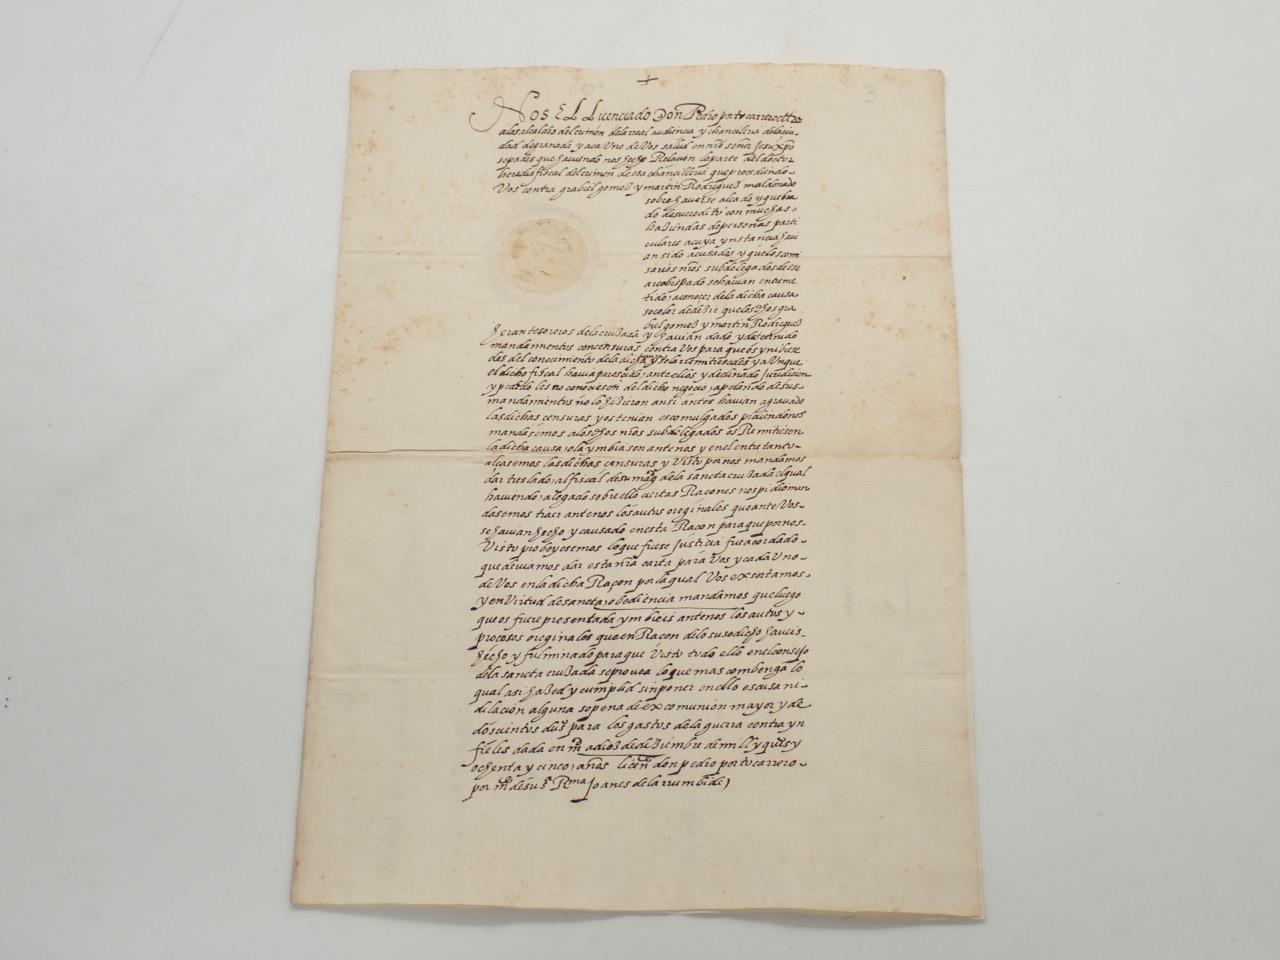 3
+
Nos El Licenciado Don Pedro portocarrero etts
a los alcaldes del crimen de la real audiencia y chancilleria de la ciu
dad de granada y a cada Uno de Vos salud en nro señor Jesuxpo
sepades que haviendo nos hecho Relaçion la parte del doctor
heredia fiscal del crimen de esa chancilleria que procediendo
Vos contra grabiel gomez y martin Rodriguez maldonado
sobre haverse alcado y quebra
do de su credito con muchas
haziendas de personas parti
culares a cuya ynstancia havi
an sido acusados y que los comi
sarios nros subdelegados de ese
arcobispado se havian entreme
tido a conocer de la dicha causa
so color de dezir que los dhos gra
biel gomez y martin Rodriguez
heran tesoreros de la cruzada y havian dado y descernido
mandamientos con censuras contra Vos para que os ynibiese
des del conocimiento de la dicha causa y se la remitiesedes y aUnque
el dicho fiscal havia parescido ante ellos y declinado Jurisdicion
y pedido les no conociesen del dicho negocio apelando de sus
mandamientos no lo hizieron ansi antes havian agravado
las dichas censuras y os tenian escomulgados pidiendonos
mandasemos a los dhos nros subdelegados os Remitiesen
la dicha causa o la ymbiasen ante nos y en el entretanto
alcasemos las dichas censuras y Visto por nos mandamos
dar treslado al fiscal de su magd de la sancta cruzada el qual
haviendo alegado sobre ello ciertas Raçones nos pidio man
dasemos traer ante nos los autos oreginales que ante Vos
se havian hecho y causado en esta Raçon para que por nos
Visto proveyesemos lo que fuese Justicia fue acordado
que deviamos dar esta nra carta para Vos y cada Uno
de Vos en la dicha Raçon por la qual Vos exsortamos
y en Virtud de sancta obediencia mandamos que luego
que os fuere presentada ymbieis ante nos los autos y
procesos oreginales que en Raçon de lo susodicho haveis
hecho y fulminado para que Visto todo ello en el consejo
de la sancta cruzada se provea lo que mas combenga lo
qual asi hazed y cumplid sin poner en ello escusa ni
dilacion alguna so pena de excomunion mayor y de
doscientos ds para los gastos de la guerra contra yn
fieles dada en md a diez de diziembre de mill y qus y
ochenta y cinco años licendo don pedro portocarrero
por mdo de su sa Rma Joanes de la rrumbide